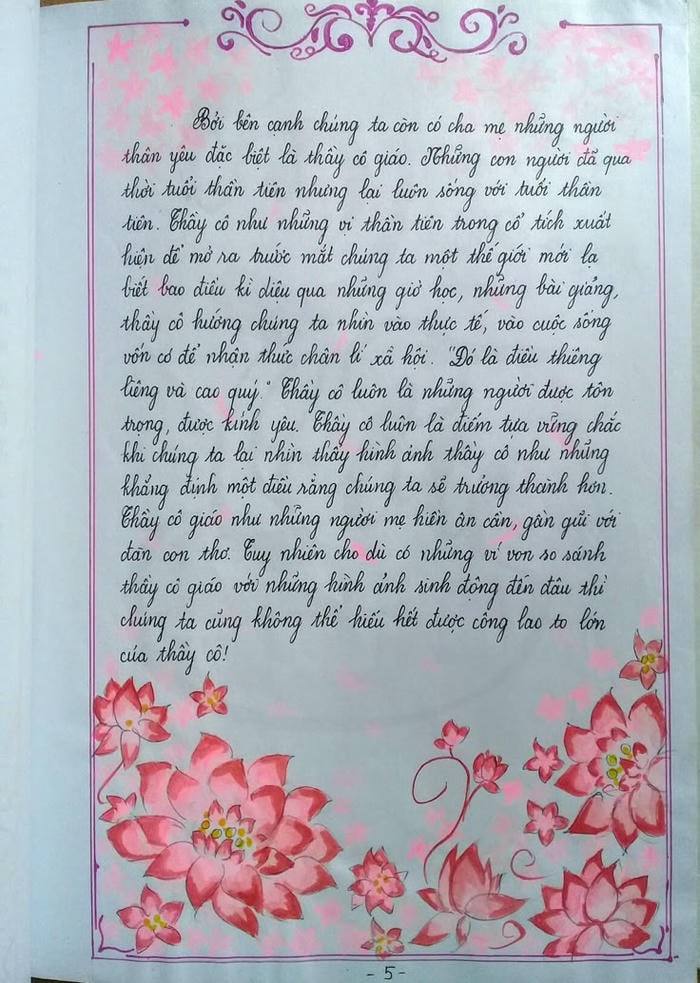 Bởi bên cạnh chúng ta còn có cha mẹ những người
thân yêu đặc biệt là thầy cô giáo. Những con người đã qua
thời tuổi thần tiên nhưng lại luôn sống với tuổi thần
tiên. Thầy cô như những vị thần tiên trong cổ tích xuất
hiện để mở ra trước mắt chúng ta một thế giới mới lạ
biết bao điều kì diệu qua những giờ học, những bài giảng,
thầy cô hướng chúng ta nhìn vào thực tế, vào cuộc sống
vốn có để nhận thức chân lí xã hội. "Đó là điều thiêng
liêng và cao quý." Thầy cô luôn là những người được tôn
trọng, được kính yêu. Thầy cô luôn là điểm tựa vững chắc
khi chúng ta lại nhìn thấy hình ảnh thầy cô như những
khẳng định một điều rằng chúng ta sẽ trưởng thành hơn.
Thầy cô giáo như những người mẹ hiền ân cần, gần gũi với
đàn con thơ. Tuy nhiên cho dù có những ví von so sánh
thầy cô giáo với những hình ảnh sinh động đến đâu thì
chúng ta cũng không thể hiểu hết được công lao to lớn
của thầy cô!
- 5 -